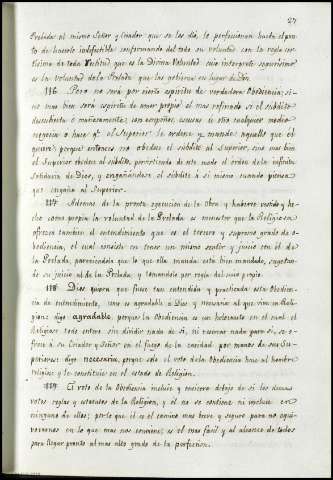 27
Prelada al mismo Señor y Criador que se las dió, le perfeccionan hasta el pun-
to de hacerlo indefectible conformando del todo su voluntad con la regla cer-
tísima de toda rectitud que es la Divina Voluntad cuio interprete segurísimo
es la voluntad de la Prelada que las gobierna en lugar de Dios.
116. Pero no será por cierto espíritu de verdadera Obediencia; si-
no mas bien será espíritu de amor propio el mas refinado si el súbdito
descubierta ó mañosamente; con empeños, escusas ú otro cualquier medio
negocia ó hace qe. el Superior le ordene y mande aquello que él
quiere, porque entonces no obedece el súbdito al Superior, sino mas bien
el Superior obedece al súbdito, pervirtiendo de este modo el órden de la infinita
Sabiduría de Dios, y engañándose el súbdito á si mismo cuando piensa
que engaña al Superior.
117. Ademas de la pronta egecucion de la obra y haberse vestido y he-
cho como propia la voluntad de la Prelada es menester que la Religiosa
ofrezca tambien el entendimiento que es el tercero y supremo grado de o-
bediencia, el cual consiste en tener un mismo sentir y juicio con el de
la Prelada, pareciéndola que lo que ella manda está bien mandado, sugetan-
do su juicio al de la Prelada y tomándole por regla del suio propio.
118. Dios quiera que fuese tan entendida y practicada esta Obedien-
cia de entendimiento, como es agradable á Dios y necesaria al que vive en Reli-
gion: digo agradable porque la Obediencia es un holocausto en el cual el
Religioso todo entero sin dividir nada de si, ni reservar nada para si, se o-
frece á su Criador y Señor en el fuego de la caridad por manos de sus Su-
periores: digo necesaria, porque solo el voto de la Obediencia hace al hombre
religioso y le constituie en el estado de Religion.
119. El voto de la Obediencia incluie y encierra debajo de si los demas
votos reglas y estatutos de la Religion, y el no se contiene ni incluie en
ninguno de ellos; por lo que él es el camino mas breve y seguro para no equi-
vocarnos en lo que mas nos conviene; es el mas fácil y al alcance de todos
para llegar pronto al mas alto grado de la perfeccion.